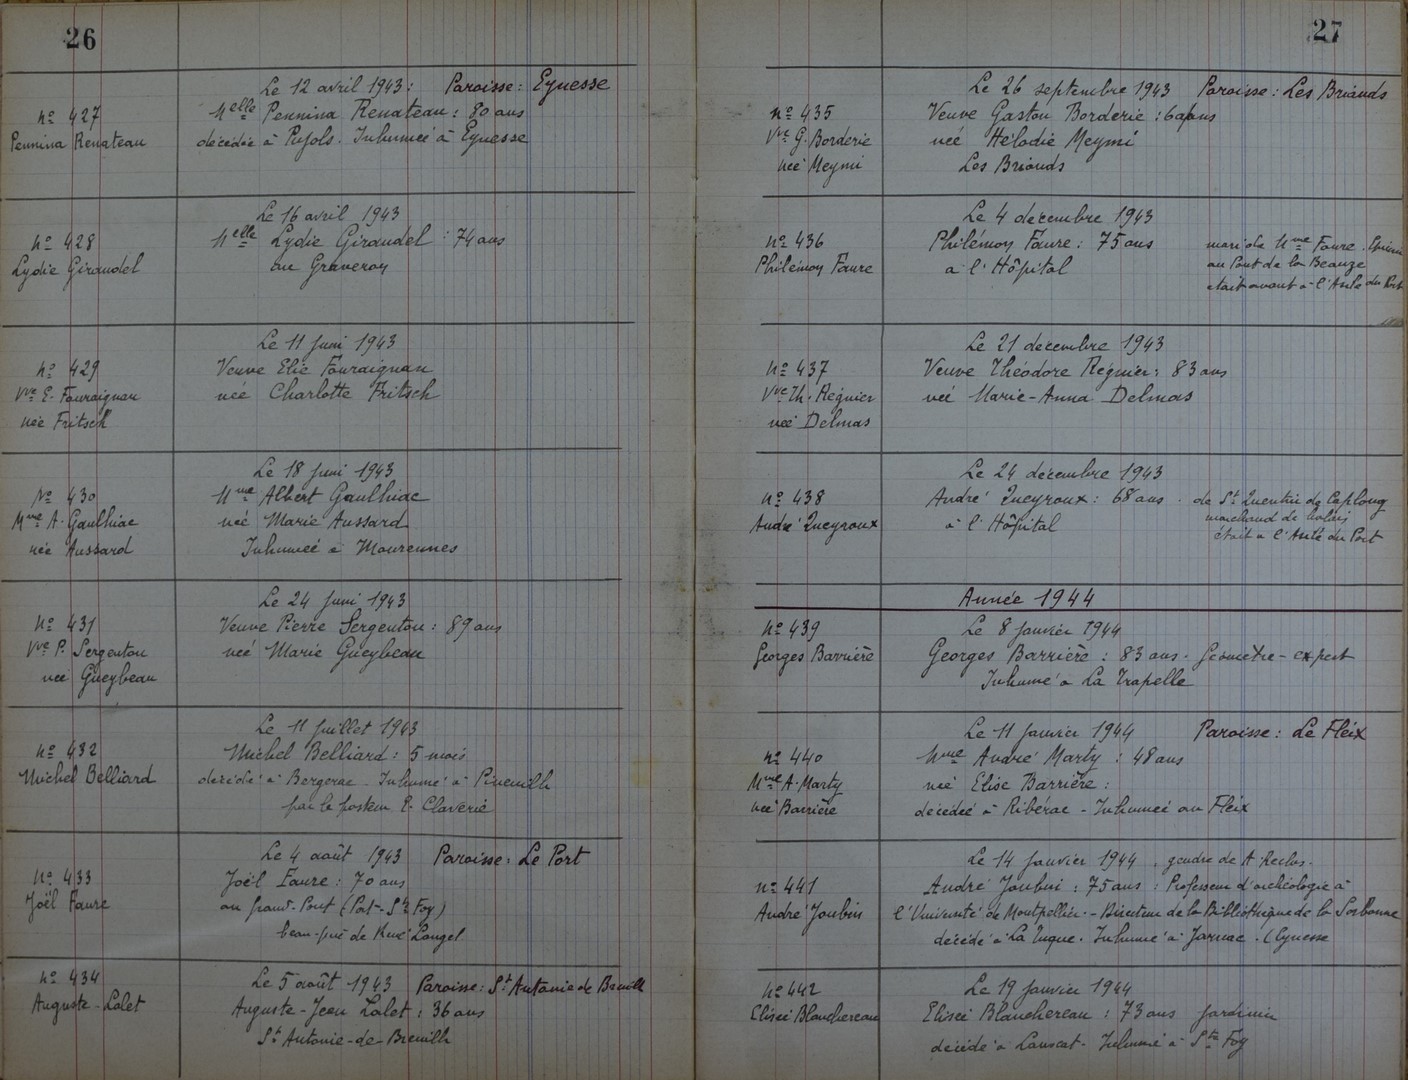 26
Le 12 avril 1943 : Paroisse : Eynesse
nº 427
Pennina Renateau
Melle Pennina Renateau : 80 ans
décédée à Pujols. Inhumée à Eynesse
Le 16 avril 1943
nº 428
Lydie Giraudel
Melle Lydie Giraudel : 74 ans
au Graveron
Le 11 juin 1943
nº 429
Vve E. Fouraignan
née Fritsch
Veuve Elie Fouraignan
née Charlotte Fritsch
Le 18 juin 1943
Nº 430
Mme A. Gaulhiac
née Aussard
Mme Albert Gaulhiac
née Marie Aussard
Inhumée à Mourennes
Le 24 juin 1943
nº 431
Vve P. Sergenton
née Gueybeau
Veuve Pierre Sergenton : 89 ans
née Marie Gueybeau
Le 11 juillet 1943
nº 432
Michel Belliard
Michel Belliard : 5 mois
décédé à Bergerac - Inhumé à Pineuilh
par le pasteur E. Claverie
Le 4 août 1943 Paroisse : Le Port
nº 433
Joël Faure
Joël Faure : 70 ans
au grand-Pont (Port-Ste Foy)
beau-père de Langel
Le 5 août 1943 Paroisse : St Antoine de Breuilh
nº 434
Auguste Lalet
Auguste-Jean Lalet : 36 ans
St Antoine-de-Breuilh
27
Le 26 septembre 1943 Paroisse : Les Briands
nº 435
Vve G. Borderie
née Meymi
Veuve Gaston Borderie : ans
née Hélodie Meymi
Les Briands
Le 4 décembre 1943
nº 436
Philémon Faure
Philémon Faure : 75 ans
à l'Hôpital
mari de Mme Faure.
au Pont de la Beauze
était avant à l'Asile du Port
Le 21 décembre 1943
nº 437
Vve Th. Régnier
née Delmas
Veuve Théodore Régnier : 83 ans
née Marie-Anna Delmas
Le 24 décembre 1943
nº 438
André Queyroux
André Queyroux : 68 ans - de St Quentin de Caplong
à l'Hôpital
marchand de balais
était à l'Asile du Port
Année 1944
nº 439
Georges Barrière
Le 8 janvier 1944
Georges Barrière : 83 ans - géomètre-expert
Inhumé à La Trapelle
Le 11 janvier 1944 Paroisse : Le Fleix
nº 440
Mme A. Marty
née Barrière
Mme André Marty : 48 ans
née Elise Barrière :
décédée à Ribérac - Inhumée au Fleix
Le 14 janvier 1944, gendre de A Reclus.
nº 441
André Joubin
André Joubin : 75 ans : Professeur d'archéologie à
l'Université de Montpellier. - Directeur de la Bibliothèque de la Sorbonne
décédé à La Inhumé à Jarnac. (Eynesse
Le 19 janvier 1944
nº 442
Elisée Blanchereau
Elisée Blanchereau : 73 ans jardinier
décédé à Lauscat. Inhumé à Ste Foy